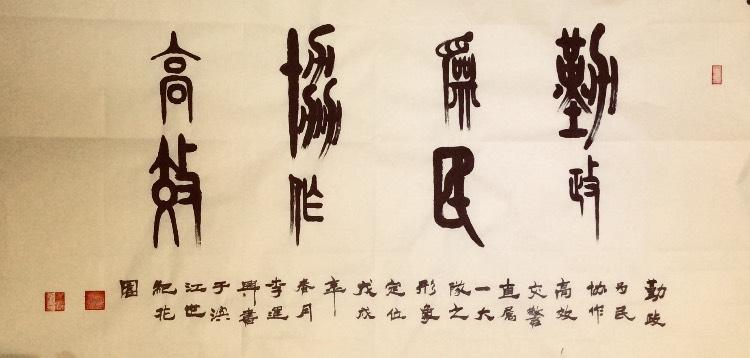 勤政
为民
協作
高效
勤政
为民
协作
高效
交警
直属
一大
隊之
形象
定位
戊戌
年
春月
李運
興書
于滨
江世
紀花
園